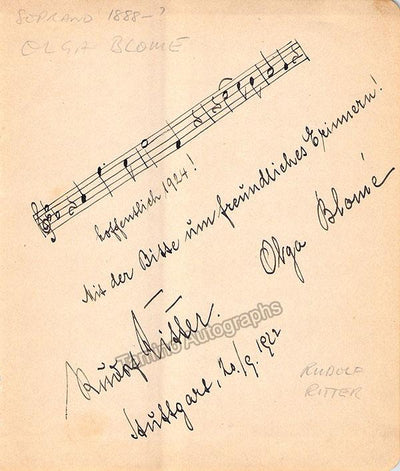 SOPRANO 1888-?
OLGA BLOMÉ
Hoffentlich 1924!
Mit der Bitte um freundliches Erinnern!
Olga Blomé
Rudolf Ritter.
Tamino Autographs
Stuttgart, 20./9. 1922
RUDOLF
RITTER